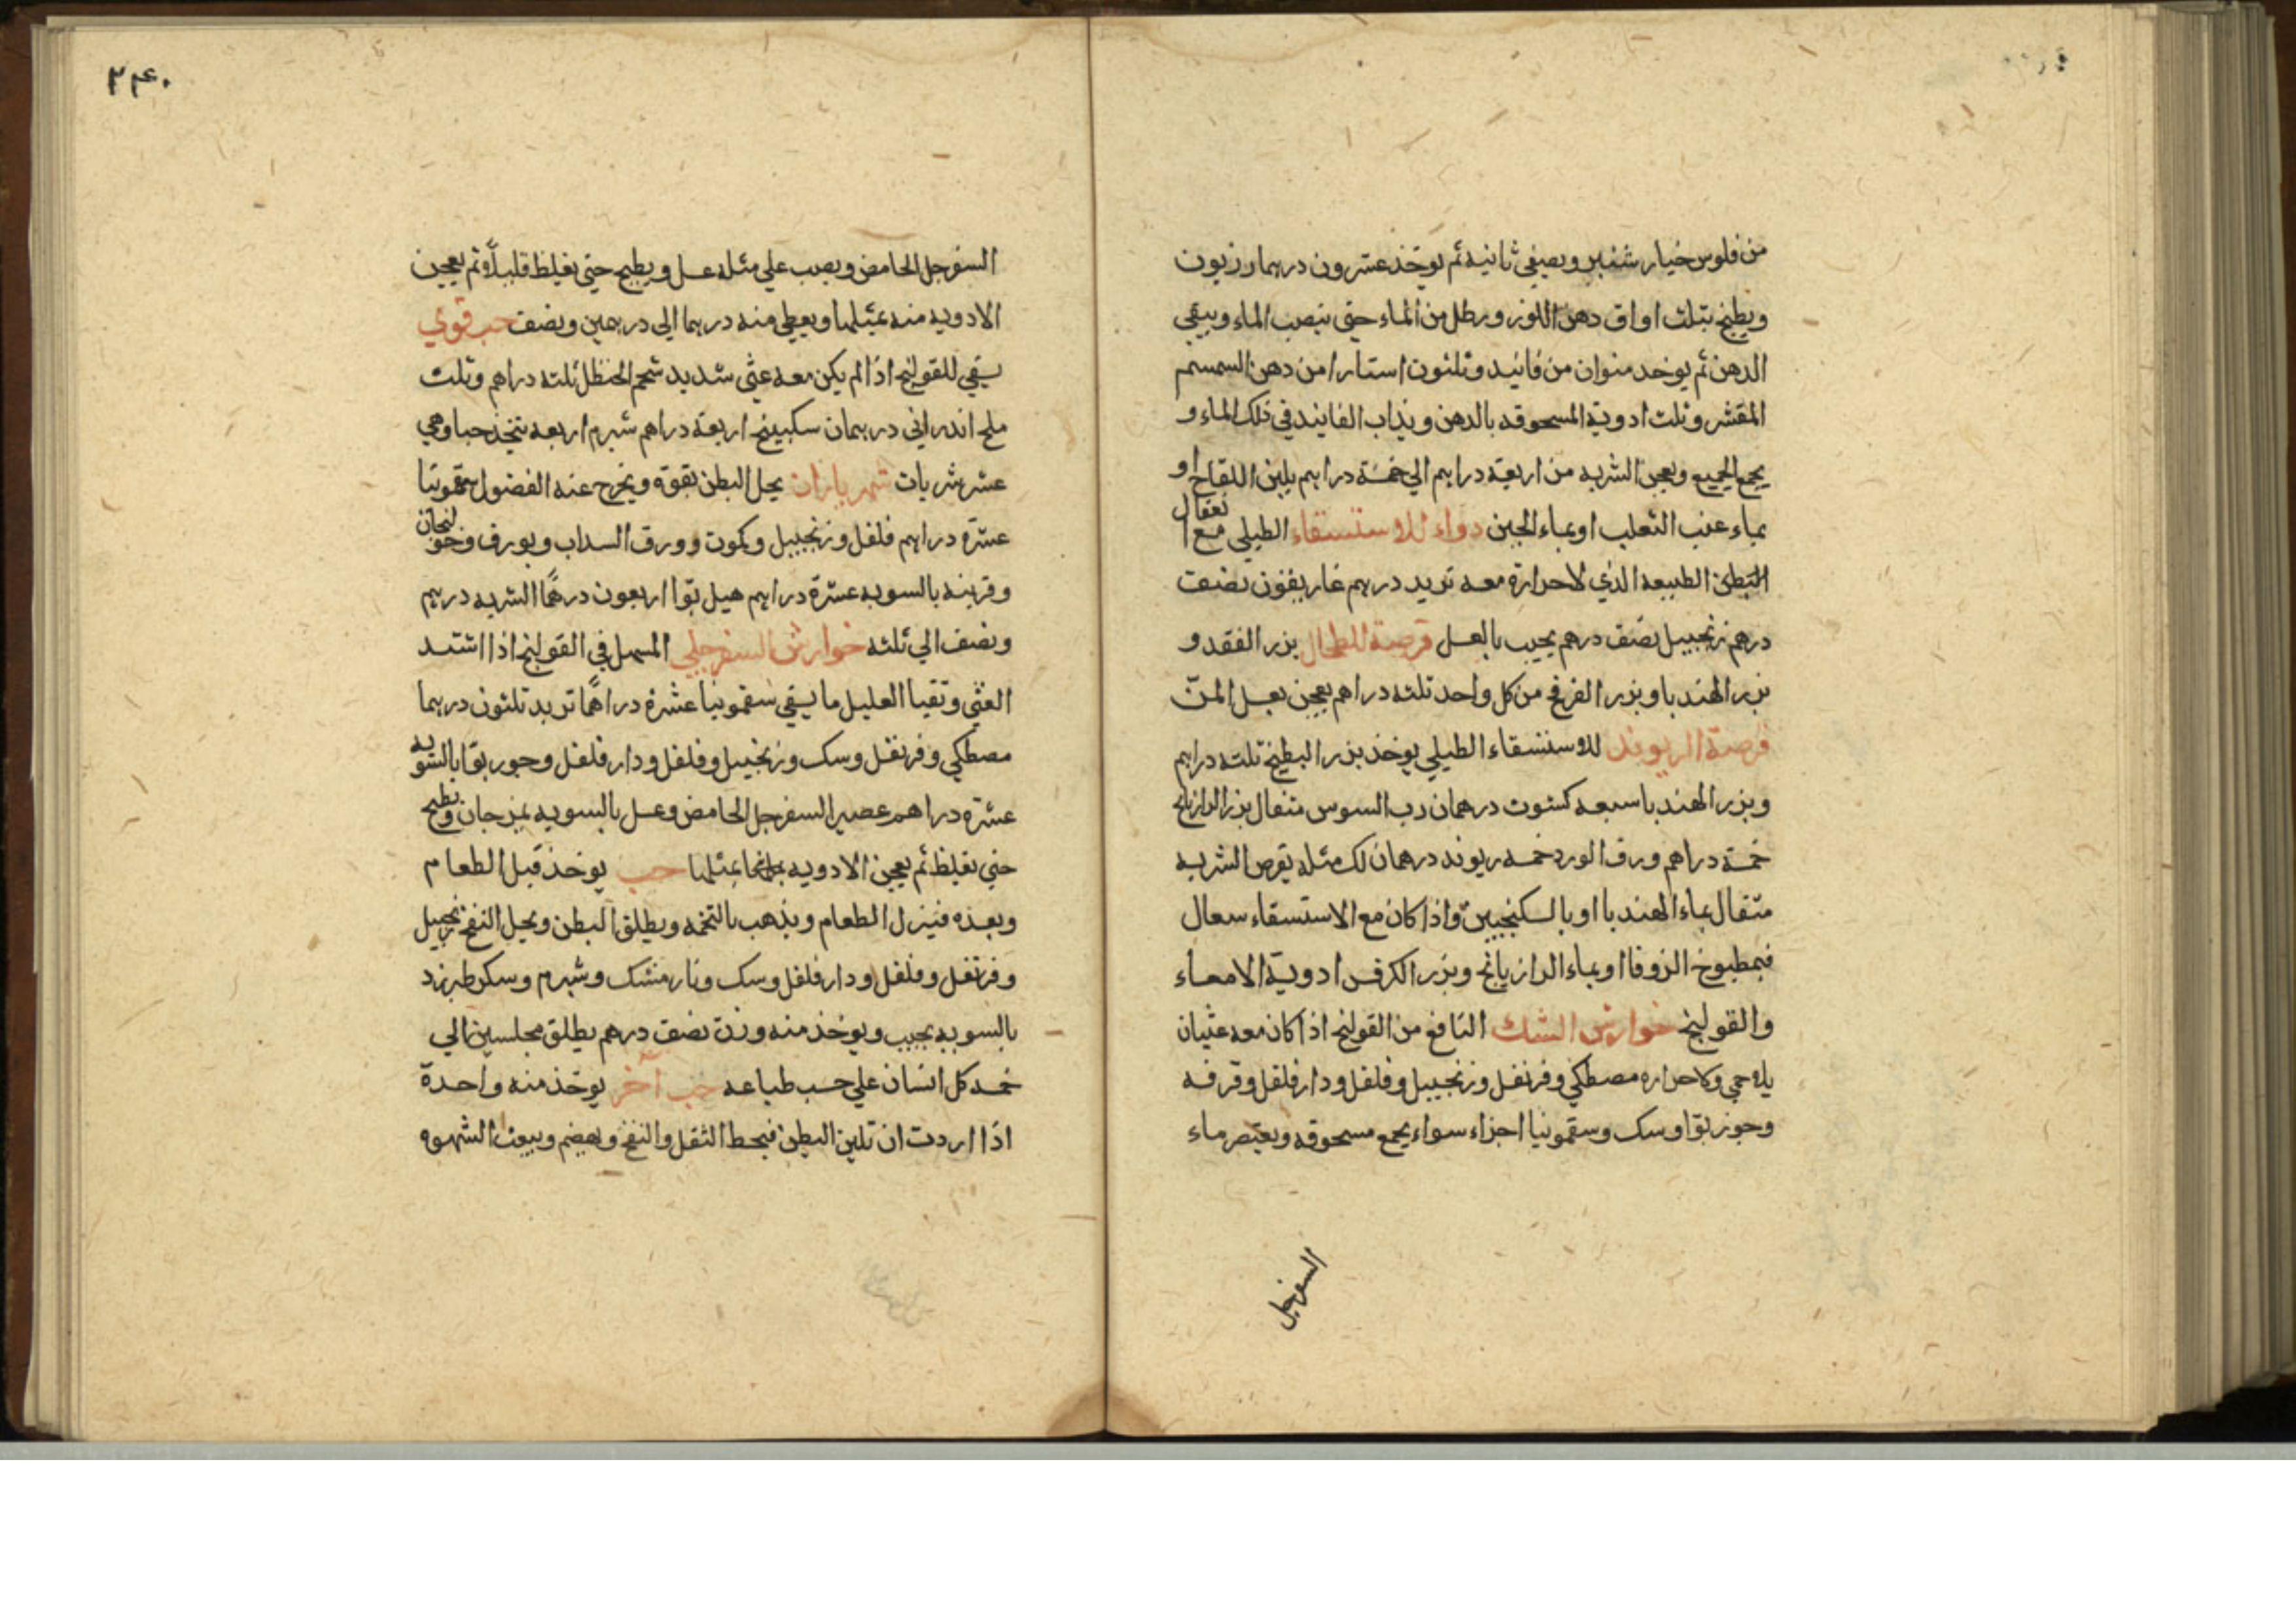 من فلوس خيار شنبر ويصفي ثانيه ثم يوخذ عشرون درهما وزيون
ويطبخ بثلث اواق دهن اللوز ورطل من الماء حتى ينصب الماء ويبقي
الدهن ثم يوخد منوان من فانيد وثلثون استارا من دهن السمسم
المقشر وثلث ادوية المسحوقه بالدهن ويذاب الفانيد في ذلك الماء و
يجمع الجميع ويعجن الشربه من اربعة دراهم الي خمسة دراهم بلبن اللقاح او
بماء عنب الثعلب او بماء الجبن دواء للاستسقاء الطبلي مع اعتقال
البطن الطبيعه الذي لا حرارة معه تربد درهم غاريقون نصف
درهم زنجبيل نصف درهم يحبب بالعسل قرصة للطحال بزر الفقد و
بزر الهندبا وبزر الفرفخ من كل واحد ثلثه دراهم يعجن بعسل المن
قرصة الريوند للاستسقاء الطبلي يوخذ بزر البطيخ ثلثه دراهم
وبزر الهندبا سبعه كشوث درهمان رب السوس مثقال بزر الرازيانج
خمسة دراهم ورق الورد خمسه ريوند درهمان لك مثله يقرص الشربه
مثقال بماء الهندبا او بالسكنجبين واذا كان مع الاستسقاء سعال
فبمطبوخ الزوفا او بماء الرازيانج وبزر الكرفس ادوية الامعاء
والقولنج خوارش الشك النافع من القولنج اذا كان معه غثيان
بلا حمي ولا حراره مصطكي وقرنفل وزنجبيل وفلفل ودار فلفل وقرفه
وجوز بوا وسك وسقمونيا اجزاء سواء يجمع مسحوقه ويعتصر ماء
السفرجل
٢٤٠
السفرجل الحامض ويصب علي مثله عسل ويطبخ حتي يغلظ قليلاً ثم يعجن
الادويه منه بمثلها ويعطي منه درهما الي درهمين ونصف حب قوي
يسقي للقولنج اذا لم يكن معه غثي شديد شحم الحنظل ثلثه دراهم وثلث
ملح اندراني درهمان سكبينج اربعة دراهم شبرم اربعه يتخذ حبا وهي
عشر شربات شهرياران يحل البطن بقوة ويخرج عنه الفضول سقمونيا
عشرة دراهم فلفل وزنجبيل وكمون وورق السداب وبورق وخولنجان
وقرفه بالسويه عشرة دراهم هيل بوا اربعون درهمًا الشربه درهم
ونصف الي ثلثه خوارش السفرجلي المسهل في القولنج اذا اشتد
الغثي وتقيا العليل ما يسقي سقمونيا عشرة دراهمًا تربد ثلثون درهما
مصطكي وقرنفل وسك وزنجبيل وفلفل ودار فلفل وجوز بوا بالسويه
عشرة دراهم عصير السفرجل الحامض وعسل بالسويه يمزجان ويطبخ
حتي يغلظ ثم يعجن الادويه بمثلها حب يوخذ قبل الطعام
وبعده فينزل الطعام ويذهب بالتخمه ويطلق البطن ويحل النفخ زنجبيل
وقرنفل وفلفل ودار فلفل وسك ونارمشك وشبرم وسكر طبرزد
بالسويه يحبب ويوخذ منه وزن نصف درهم يطلق مجلسين الي
خمسه كل انسان علي حسب طباعه حب آخر يوخذ منه واحدة
اذا اردت ان تلين البطن فيحط الثقل والنفخ ويهضم ويبعث الشهوه